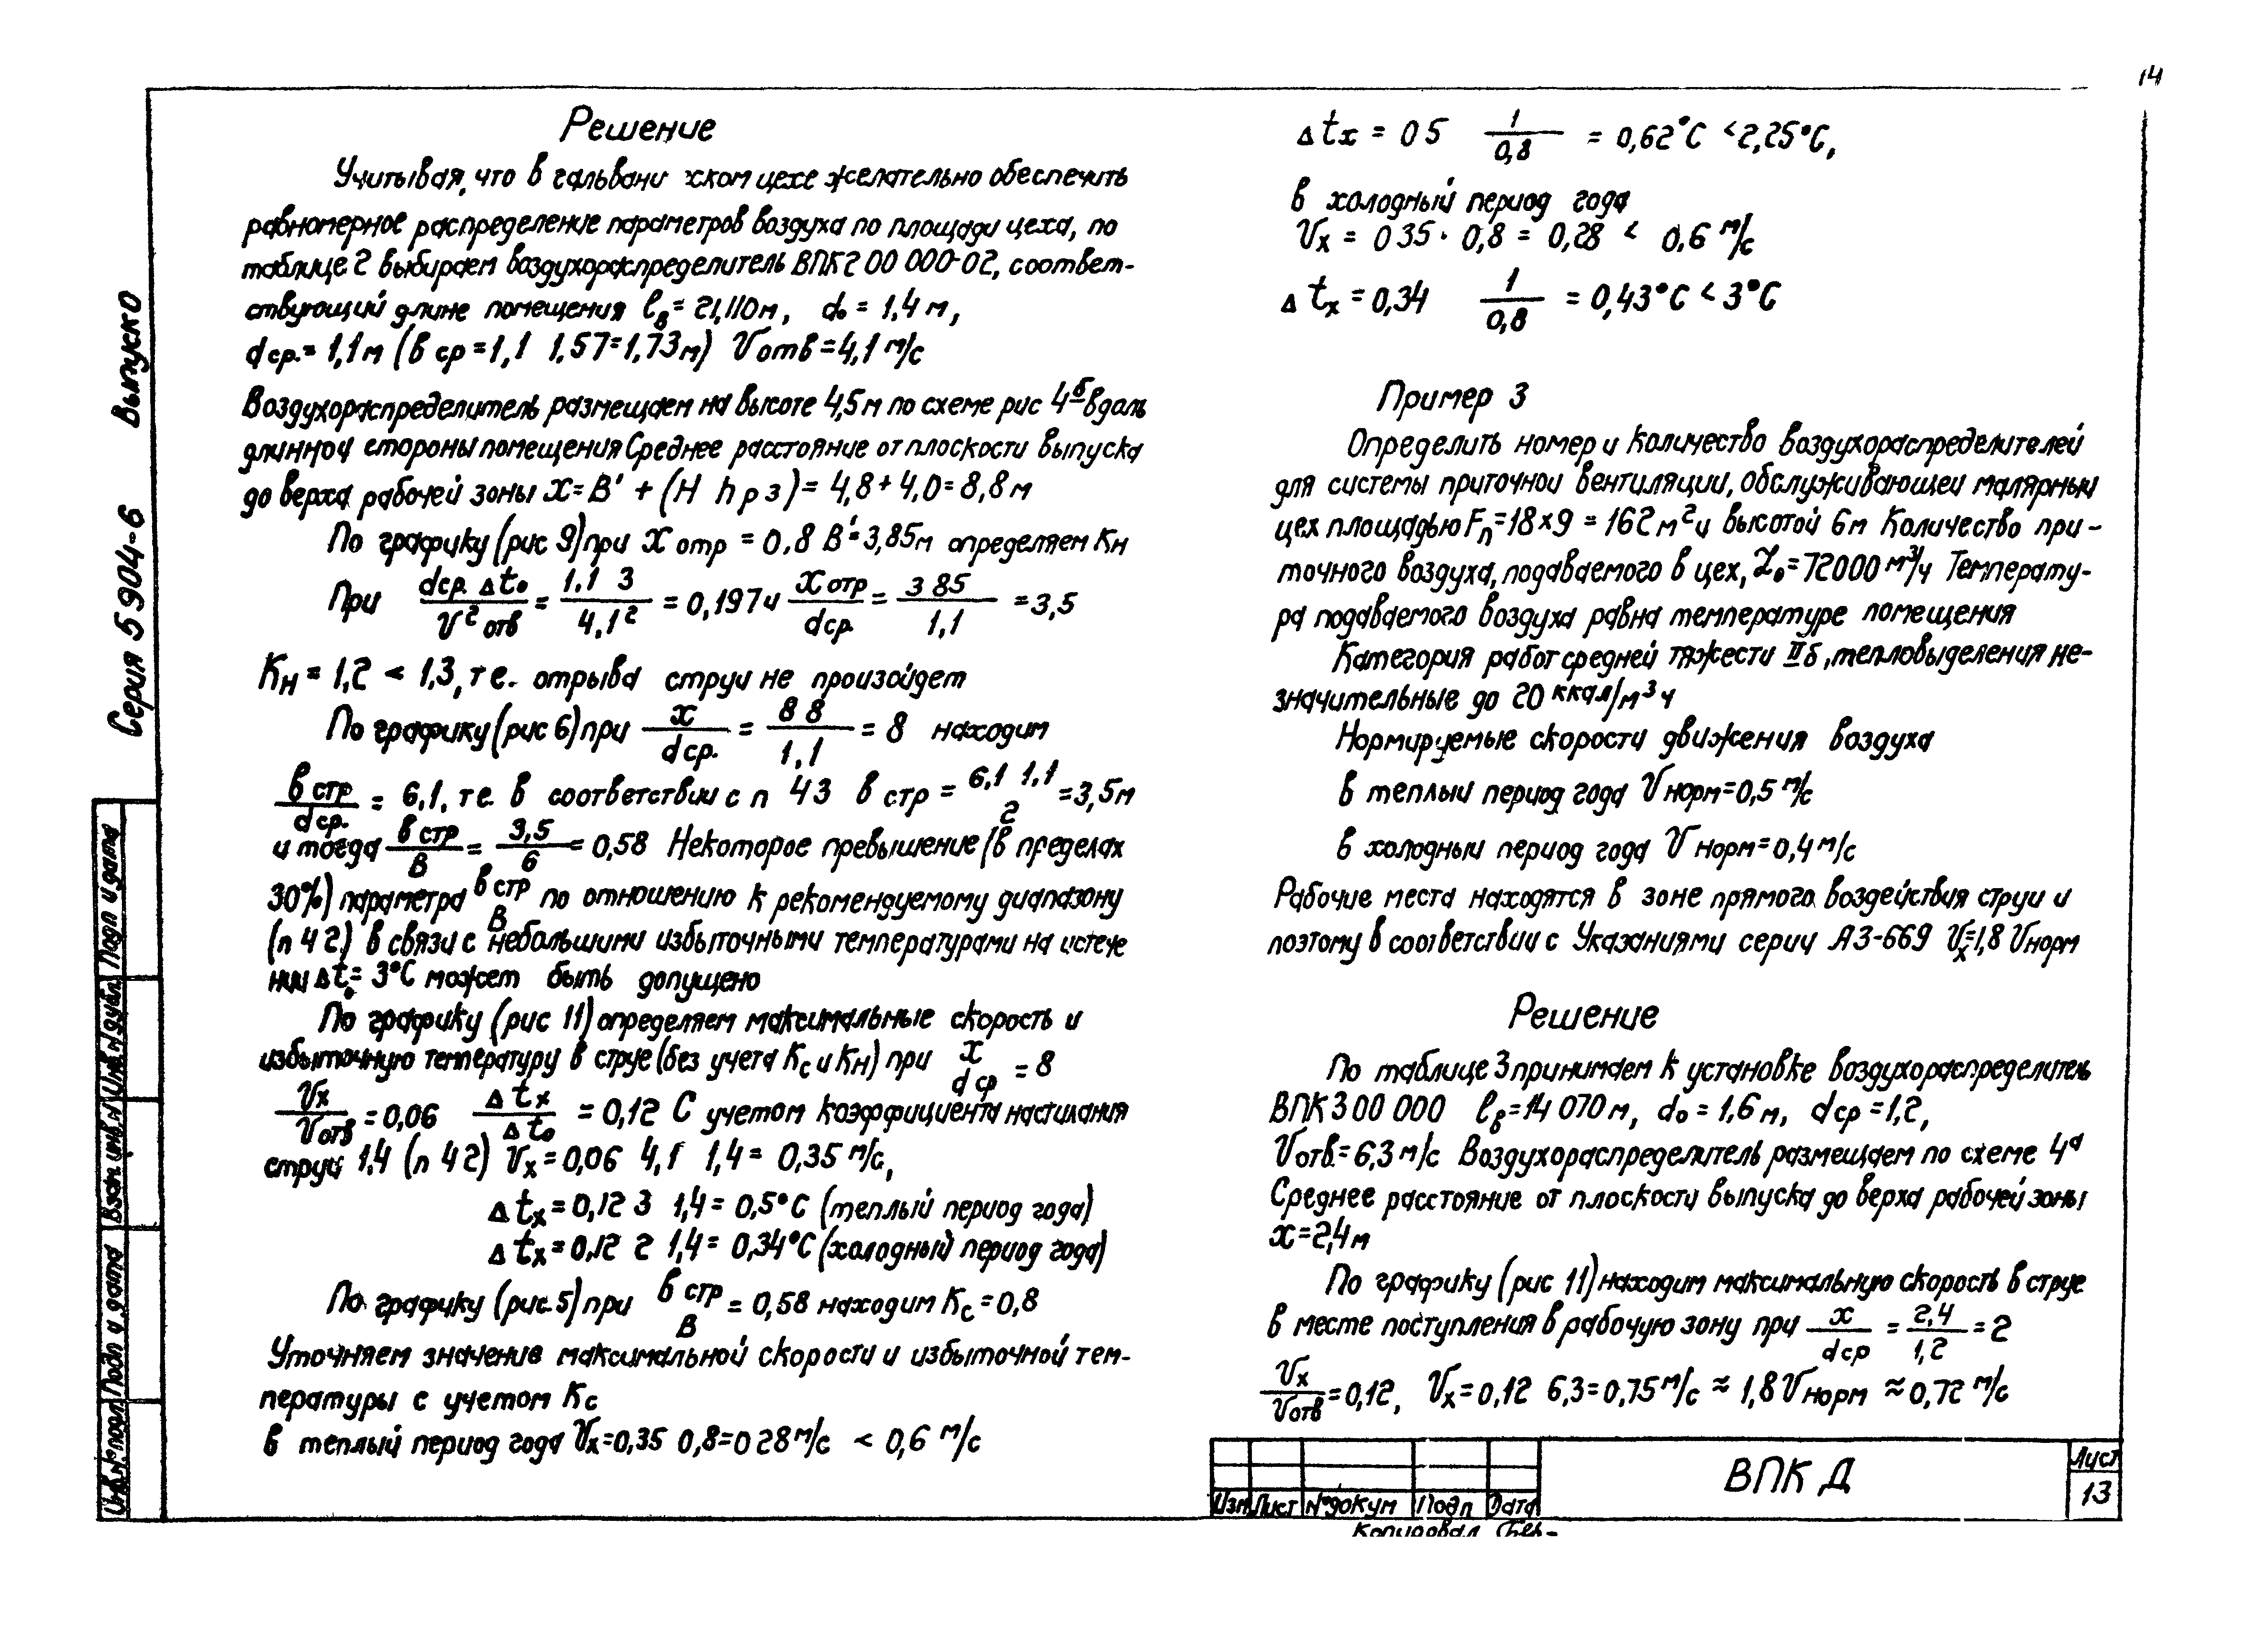 14
Решение
Учитывая, что в гальвани ском цехе желательно обеспечить
равномерное распределение параметров воздуха по площади цеха, по
таблице 2 выбираем воздухораспределитель ВПК2 00 000-02, соответ-
ствующий длине помещения ℓв = 21,110м, dо = 1,4 м,
dср.= 1,1м (в ср =1,1 1,57=1,73м) Vотв=4,1 м/с
Воздухораспределитель размещаем на высоте 4,5м по схеме рис 4б вдаль
длинной стороны помещения Среднее расстояние от плоскости выпуска
до верха рабочей зоны x= B' + (H h р з)= 4,8+ 4,0= 8,8 м
По графику (рис 9) при x отр = 0,8 B'=3,85м определяем Kн
При dср. Δtо / V² отв = 1,1 3 / 4,1² = 0,197 и x отр / dср. = 3 85 / 1,1 = 3,5
Kн = 1,2 < 1,3, т е. отрыва струи не произойдет
По графику (рис 6) при x / dср. = 8 8 / 1,1 = 8 находим
в стр / dср. = 6,1, т е. в соответствии с п 4 3 в стр = 6,1 1,1 / 2 =3,5м
и тогда в стр / B = 3,5 / 6 = 0,58 Некоторое превышение (в пределах
30%) параметра в стр / B по отношению к рекомендуемому диапазону
(п 4 2) в связи с небольшими избыточными температурами на истече
нии Δtо= 3°C может быть допущено
По графику (рис 11) определяем максимальные скорость и
избыточную температуру в струе (без учета Kс и Kн) при x / d ср = 8
Vx / Vотв = 0,06 Δtx / Δtо = 0,12 С учетом коэффициента настилания
струи 1,4 (п 4 2) Vx = 0,06 4,1 1,4 = 0,35 м/с,
Δtx = 0,12 3 1,4 = 0,5°C (теплый период года)
Δtx = 0,12 2 1,4 = 0,34°C (холодный период года)
По графику (рис.5) при в стр / B = 0,58 находим Kс = 0,8
Уточняем значение максимальной скорости и избыточной тем-
пературы с учетом Kс
в теплый период года Vx=0,35 0,8=0 28 м/с < 0,6 м/с
Δtx = 0 5 1 / 0,8 = 0,62°C < 2,25°C,
в холодный период года
Vx = 0 35 · 0,8 = 0,28 < 0,6 м/с
Δtx = 0,34 1 / 0,8 = 0,43°C < 3°C
Пример 3
Определить номер и количество воздухораспределителей
для системы приточной вентиляции, обслуживающей малярный
цех площадью Fп=18×9 = 162 м² и высотой 6м Количество при-
точного воздуха, подаваемого в цех, Lо=72000 м³/ч Температу-
ра подаваемого воздуха равна температуре помещения
Категория работ средней тяжести IIб, тепловыделения не-
значительные до 20 ккал/м³ ч
Нормируемые скорости движения воздуха
в теплый период года Vнорм=0,5 м/с
в холодный период года V норм=0,4 м/с
Рабочие места находятся в зоне прямого воздействия струи и
поэтому в соответствии с Указаниями серии А3-669 Vx=1,8 Vнорм
Решение
По таблице 3 принимаем к установке воздухораспределитель
ВПК3 00 000 ℓв=14 070м, dо = 1,6 м, dср = 1,2,
Vотв.= 6,3 м/с Воздухораспределитель размещаем по схеме 4а
Среднее расстояние от плоскости выпуска до верха рабочей зоны
x=2,4м
По графику (рис 11) находим максимальную скорость в струе
в месте поступления в рабочую зону при x / dср = 2,4 / 1,2 = 2
Vx / Vотв = 0,12, Vx = 0,12 6,3=0,75 м/с ≈ 1,8 Vнорм ≈ 0,72 м/с
Серия 5 904-6 Выпуск 0
Инв.№ подл Подп и дата Взам инв. № Инв. № дубл Подп и дата
Изм Лист № докум Подп Дата
ВПК Д
Лист
13
Копировал